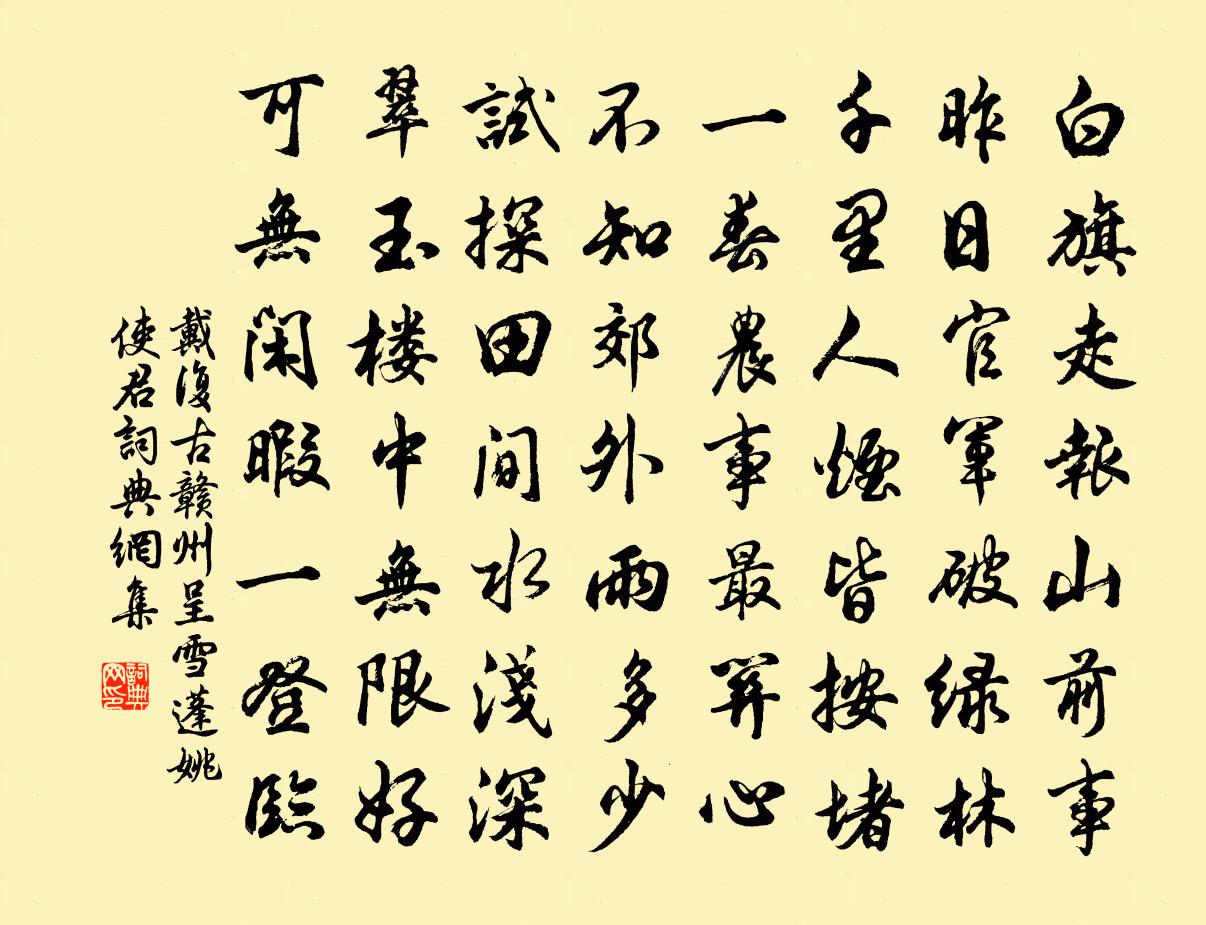 白旗走報山前事
昨日官軍破緑林
千里人煙皆按堵
一春農事最関心
不知郊外雨多少
試探田間水淺深
翠玉楼中無限好
可無閑暇一登臨
戴復古贛州呈雪蓬姚
使君詞典網集
詞典
网印